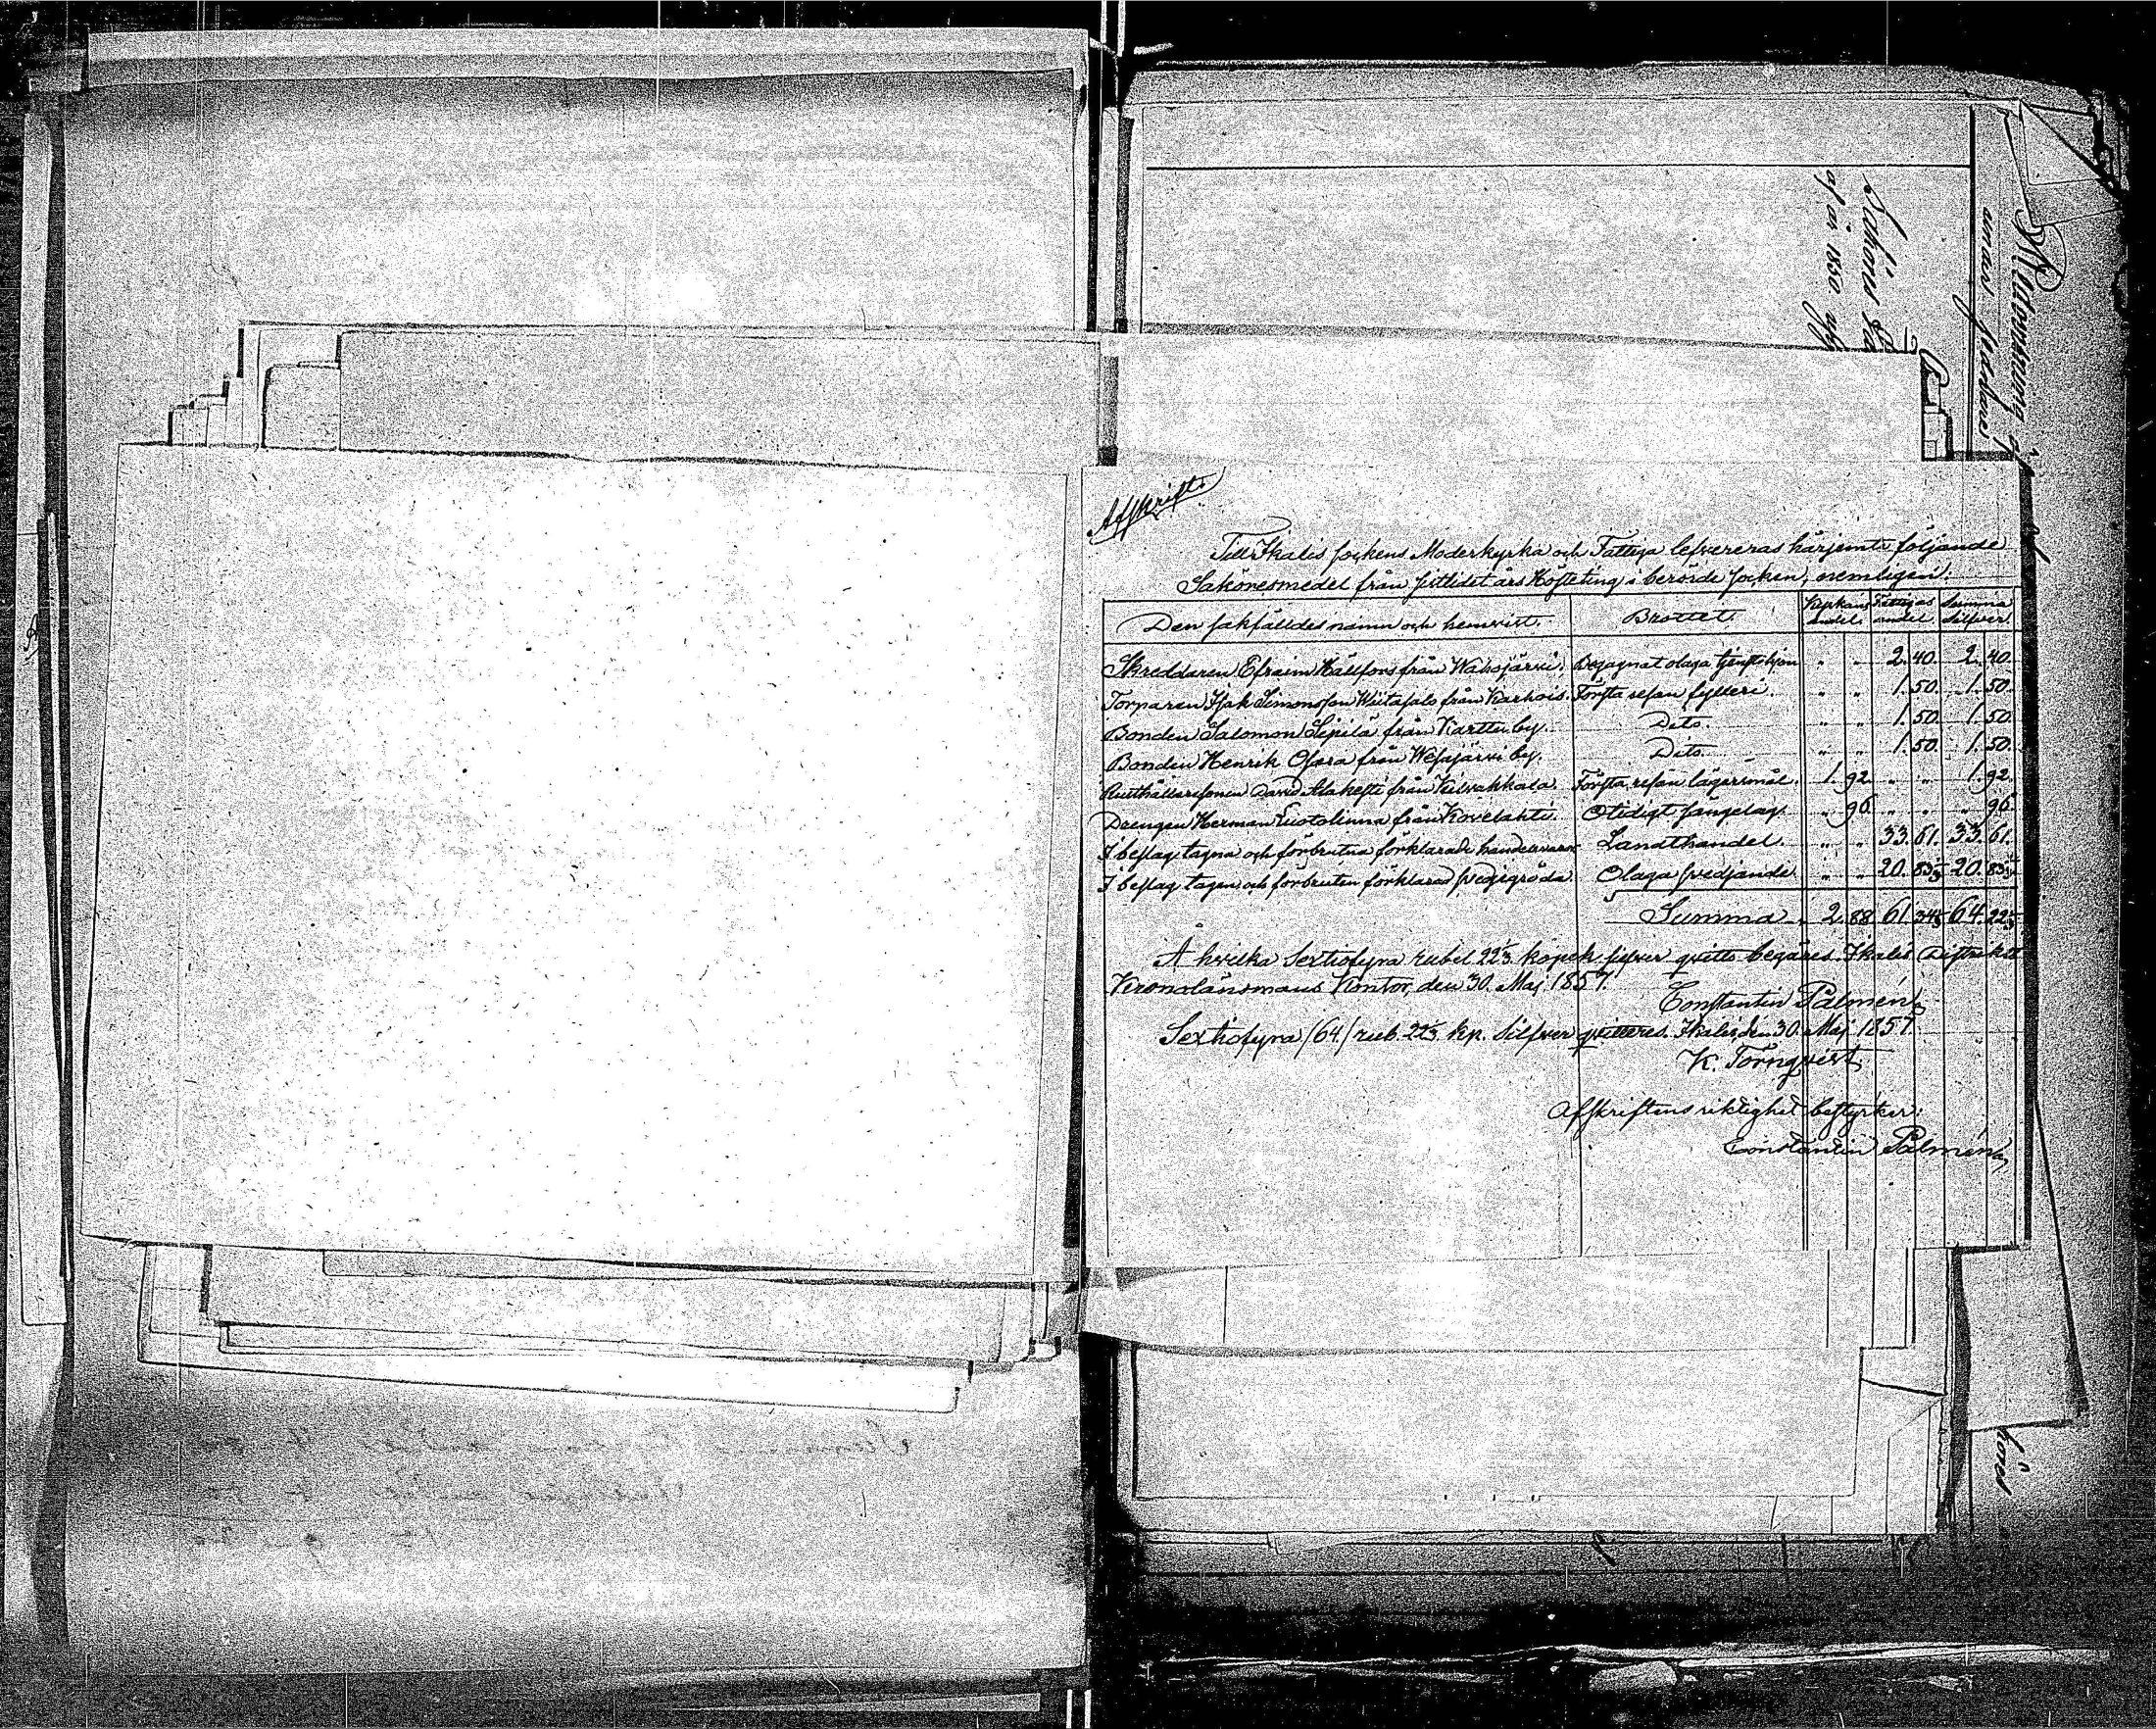 Afskrift.
Till Ikalis sockens Moderkyrka och Fattiga lefvereras härjemte följande
Sakören medel från sistlidet års Hösteting i berörde socken, nemligen:
Den sakfälldes namn och hemvist. Brottet. Kyrkans andel. Fattigas andel. Summa Silfver.
Skreddaren Efraim Hällfors från Wahojärvi. Begagnat olaga tjenstehjon " " 2. 40. 2. 40.
Torparen Isak Simonsson Wiitasalo från Karhois. Första resan fylleri. " " 1. 50. 1. 50.
Bonden Salomon Sipilä från Karttu by. Dito. " " 1. 50. 1. 50.
Bonden Henrik Ofsara från Wesajärvi by. Dito. " " 1. 50. 1. 50.
Rusthållaresonen David Alahesti från Kilvakkala. Första resan lägersmål. 1. 92. " " 1. 92.
Drengen Herman Luotolinna från Kovelahti. Otidigt sängelag. " 96. " " " 96.
I beslag tagna och förbrutna förklarade handelsvaror Landthandel. " " 33. 61. 33. 61.
I beslag tagen och förbruten förklarad svedjegröda. Olaga svedjande. " " 20. 83 1/3 20. 83 1/3
Summa 2. 88 61. 34 1/3 64. 22 1/3
Å hvilka Sextiofyra rubel 22 1/3 kopek silfver qvitto begäres. Ikalis Distrikts
Kronolänsmans Kontor, den 30. Maj 1857.
Constantin Palmén
Sextiofyra /64/ rub. 22 1/3 kp. Silfver qvitteras. Ikalis, den 30. Maj 1857.
K. Törnqvist
Afskriftens riktighet bestyrker:
Constantin Palmén
af år 1850